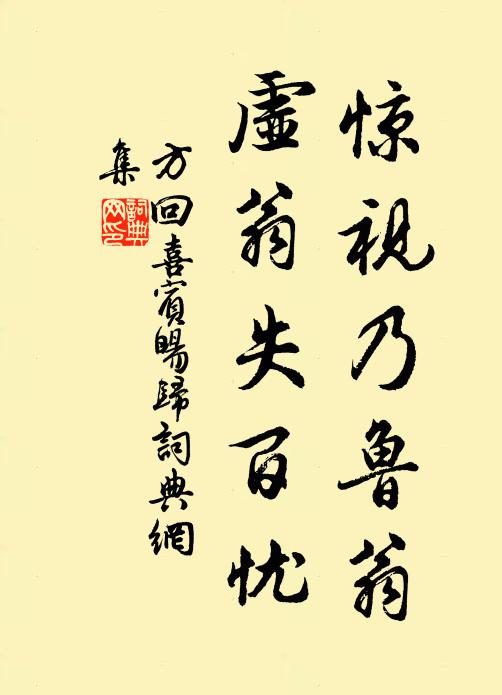 惊视乃鲁翁
虚翁失百忧
方回喜賓暘歸詞典網
集
詞典
网印